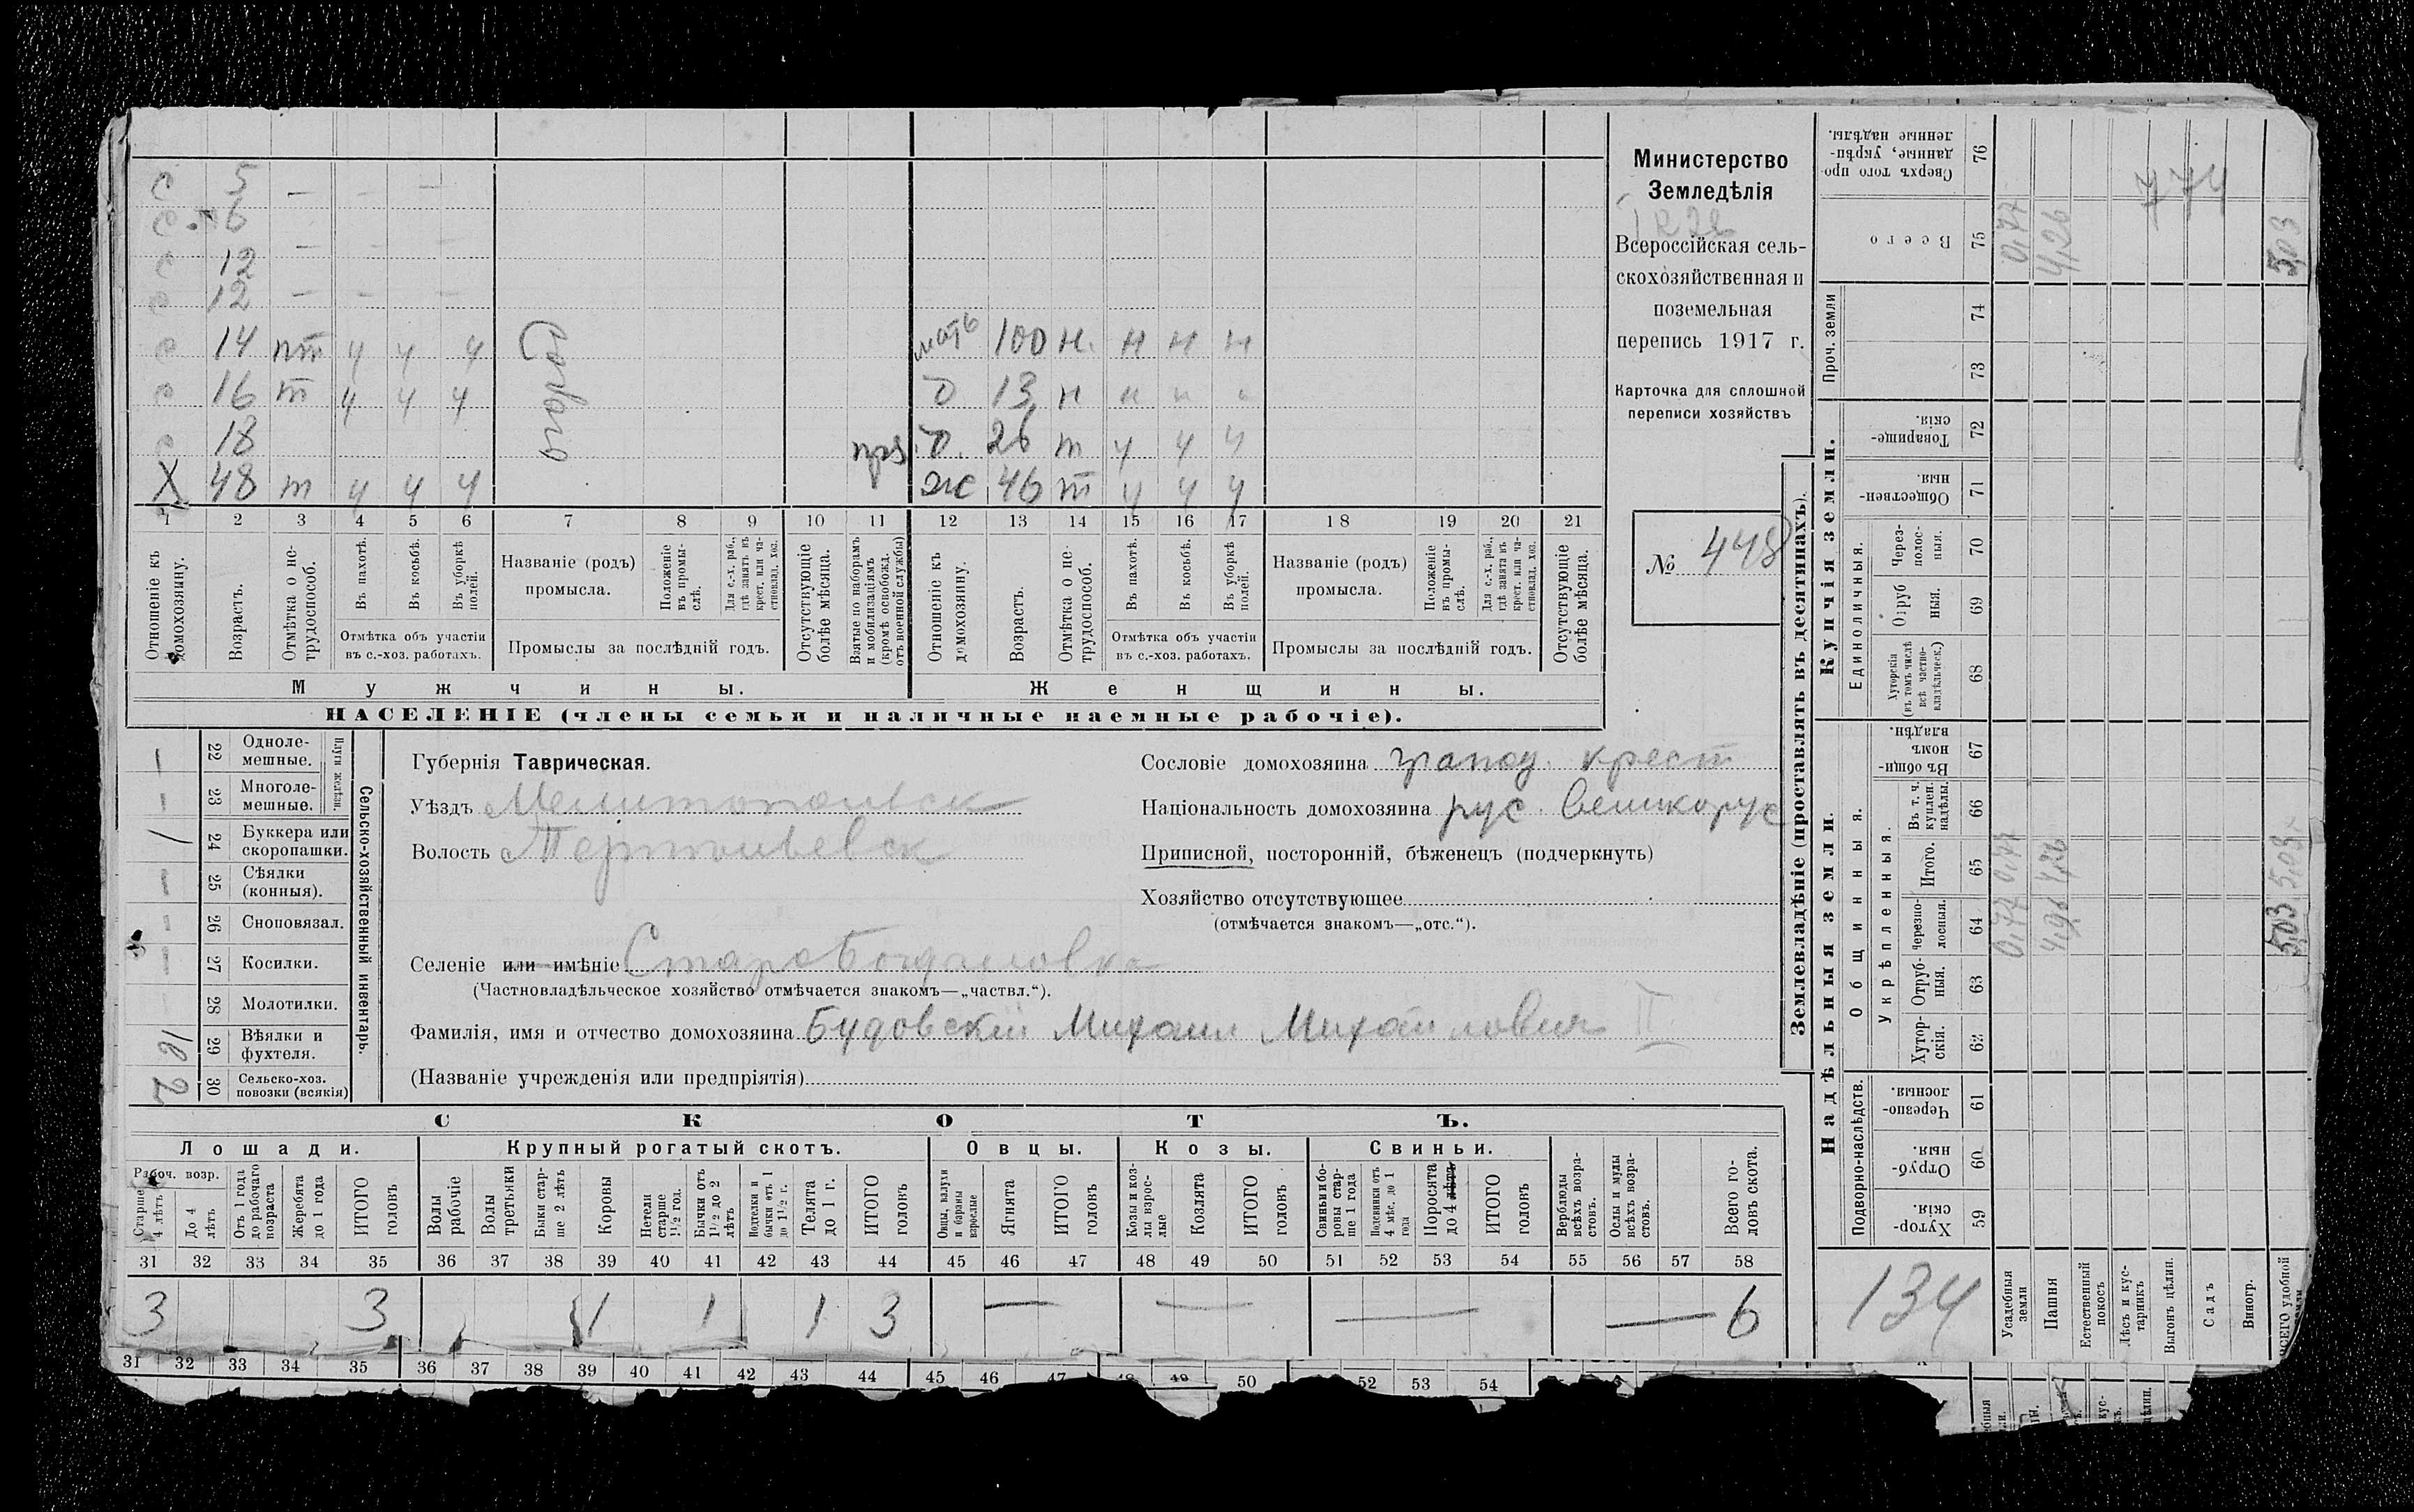 с 5 — — —
с 6
с 12 — — —
с 12 — — —
с 14 пт у у у
с 16 т у у у
с 18
Х 48 т у у у
мать 100 н. н н н
д 13 н н н н
д. 26 т у у у
ж 46 т у у у
1 2 3 4 5 6 7 8 9 10 11 12 13 14 15 16 17 18 19 20 21
Отношеніе къ домохозяину.
Возрастъ.
Отмѣтка о нетрудоспособ.
Въ пахотѣ.
Въ косьбѣ.
Въ уборкѣ полей.
Отмѣтка объ участіи въ с.-хоз. работахъ.
Названіе (родъ) промысла.
Положеніе въ промыслѣ.
Для с.-х. раб., гдѣ занятъ въ крест. или частновлад. хоз.
Промыслы за послѣдній годъ.
Отсутствующіе болѣе мѣсяца.
Взятые по наборамъ и мобилизаціямъ (кромѣ освобожд. отъ военной службы)
Отношеніе къ домохозяину.
Возрастъ.
Отмѣтка о нетрудоспособ.
Въ пахотѣ.
Въ косьбѣ.
Въ уборкѣ полей.
Отмѣтка объ участіи въ с.-хоз. работахъ.
Названіе (родъ) промысла.
Положеніе въ промыслѣ.
Для с.-х. раб., гдѣ занята въ крест. или частновлад. хоз.
Промыслы за послѣдній годъ.
Отсутствующіе болѣе мѣсяца.
Мужчины.
Женщины.
НАСЕЛЕНІЕ (члены семьи и наличные наемные рабочіе).
Министерство
Земледѣлія
Всероссійская сель-
скохозяйственная и
поземельная
перепись 1917 г.
Карточка для сплошной
переписи хозяйствъ
№ 448
Сельско-хозяйственный инвентарь.
Плуги желѣзн.
22 Однолемешные. —
23 Многолемешные. —
24 Буккера или скоропашки. 1
25 Сѣялки (конныя). —
26 Сноповязал. —
27 Косилки. —
28 Молотилки.
29 Вѣялки и фухтеля.
30 Сельско-хоз. повозки (всякія) 2
Губернія Таврическая.
Уѣздъ Мелитопольск
Волость
Селеніе или имѣніе Старо Богдановка
(Частновладѣльческое хозяйство отмѣчается знакомъ—„частвл.“).
Фамилія, имя и отчество домохозяина Будовскій Михаил Михайлович II
(Названіе учрежденія или предпріятія)
Сословіе домохозяина крест
Національность домохозяина рус. Великорус
Приписной, посторонній, бѣженецъ (подчеркнуть)
Хозяйство отсутствующее
(отмѣчается знакомъ—„отс.“).
СКОТЪ.
Лошади. Крупный рогатый скотъ. Овцы. Козы. Свиньи.
Рабоч. возр.
Старше 4 лѣтъ
До 4 лѣтъ
Отъ 1 года до рабочаго возраста
Жеребята до 1 года
ИТОГО головъ
Волы рабочіе
Волы третьяки
Быки старше 2 лѣтъ
Коровы
Нетели старше 1 1/2 год.
Бычки отъ 1 1/2 до 2 лѣтъ
Подтелки и бычки отъ 1 до 1 1/2 г.
Телята до 1 г.
ИТОГО головъ
Овцы, валухи и бараны взрослые
Ягнята
ИТОГО головъ
Козы и козлы взрослые
Козлята
ИТОГО головъ
Свиньи и боровы старше 1 года
Подсвинки отъ 4 мѣс. до 1 года
Поросята до 4 лѣтъ
ИТОГО головъ
Верблюды всѣхъ возрастовъ.
Ослы и мулы всѣхъ возрастовъ.
Всего головъ скота.
31 32 33 34 35 36 37 38 39 40 41 42 43 44 45 46 47 48 49 50 51 52 53 54 55 56 57 58
3 3 1 1 1 3 — — — — 6
31 32 33 34 35 36 37 38 39 40 41 42 43 44 45 46 47 48 49 50 52 53 54
Землевладѣніе (проставлять въ десятинахъ).
Надѣльныя земли.
Купчія земли.
Проч. земли
Подворно-наслѣдств.
Общинныя.
Укрѣпленныя.
Единоличныя.
Сверхъ того проданные, укрѣпленные надѣлы. 76
Всего 75
74
73
Товарищескія. 72
Общественныя. 71
Черезполосныя. 70
Отрубныя. 69
Хуторскія (въ томъ числѣ всѣ частновладѣльческ.) 68
Въ общинномъ владѣн. 67
Въ т. ч. куплен. надѣлы. 66
Итого. 65
Черезполосныя. 64
Отрубныя. 63
Хуторскія. 62
Черезполосныя. 61
Отрубныя. 60
Хуторскія. 59
134
Усадебныя земли 0,77 0,77 0,77
Пашня 4,26 4,26
Естественный покосъ
Лѣсъ и кустарникъ
Выгонъ цѣлин.
Садъ
Виногр.
ВСЕГО удобной земли 5,03 5,03 5,03
774